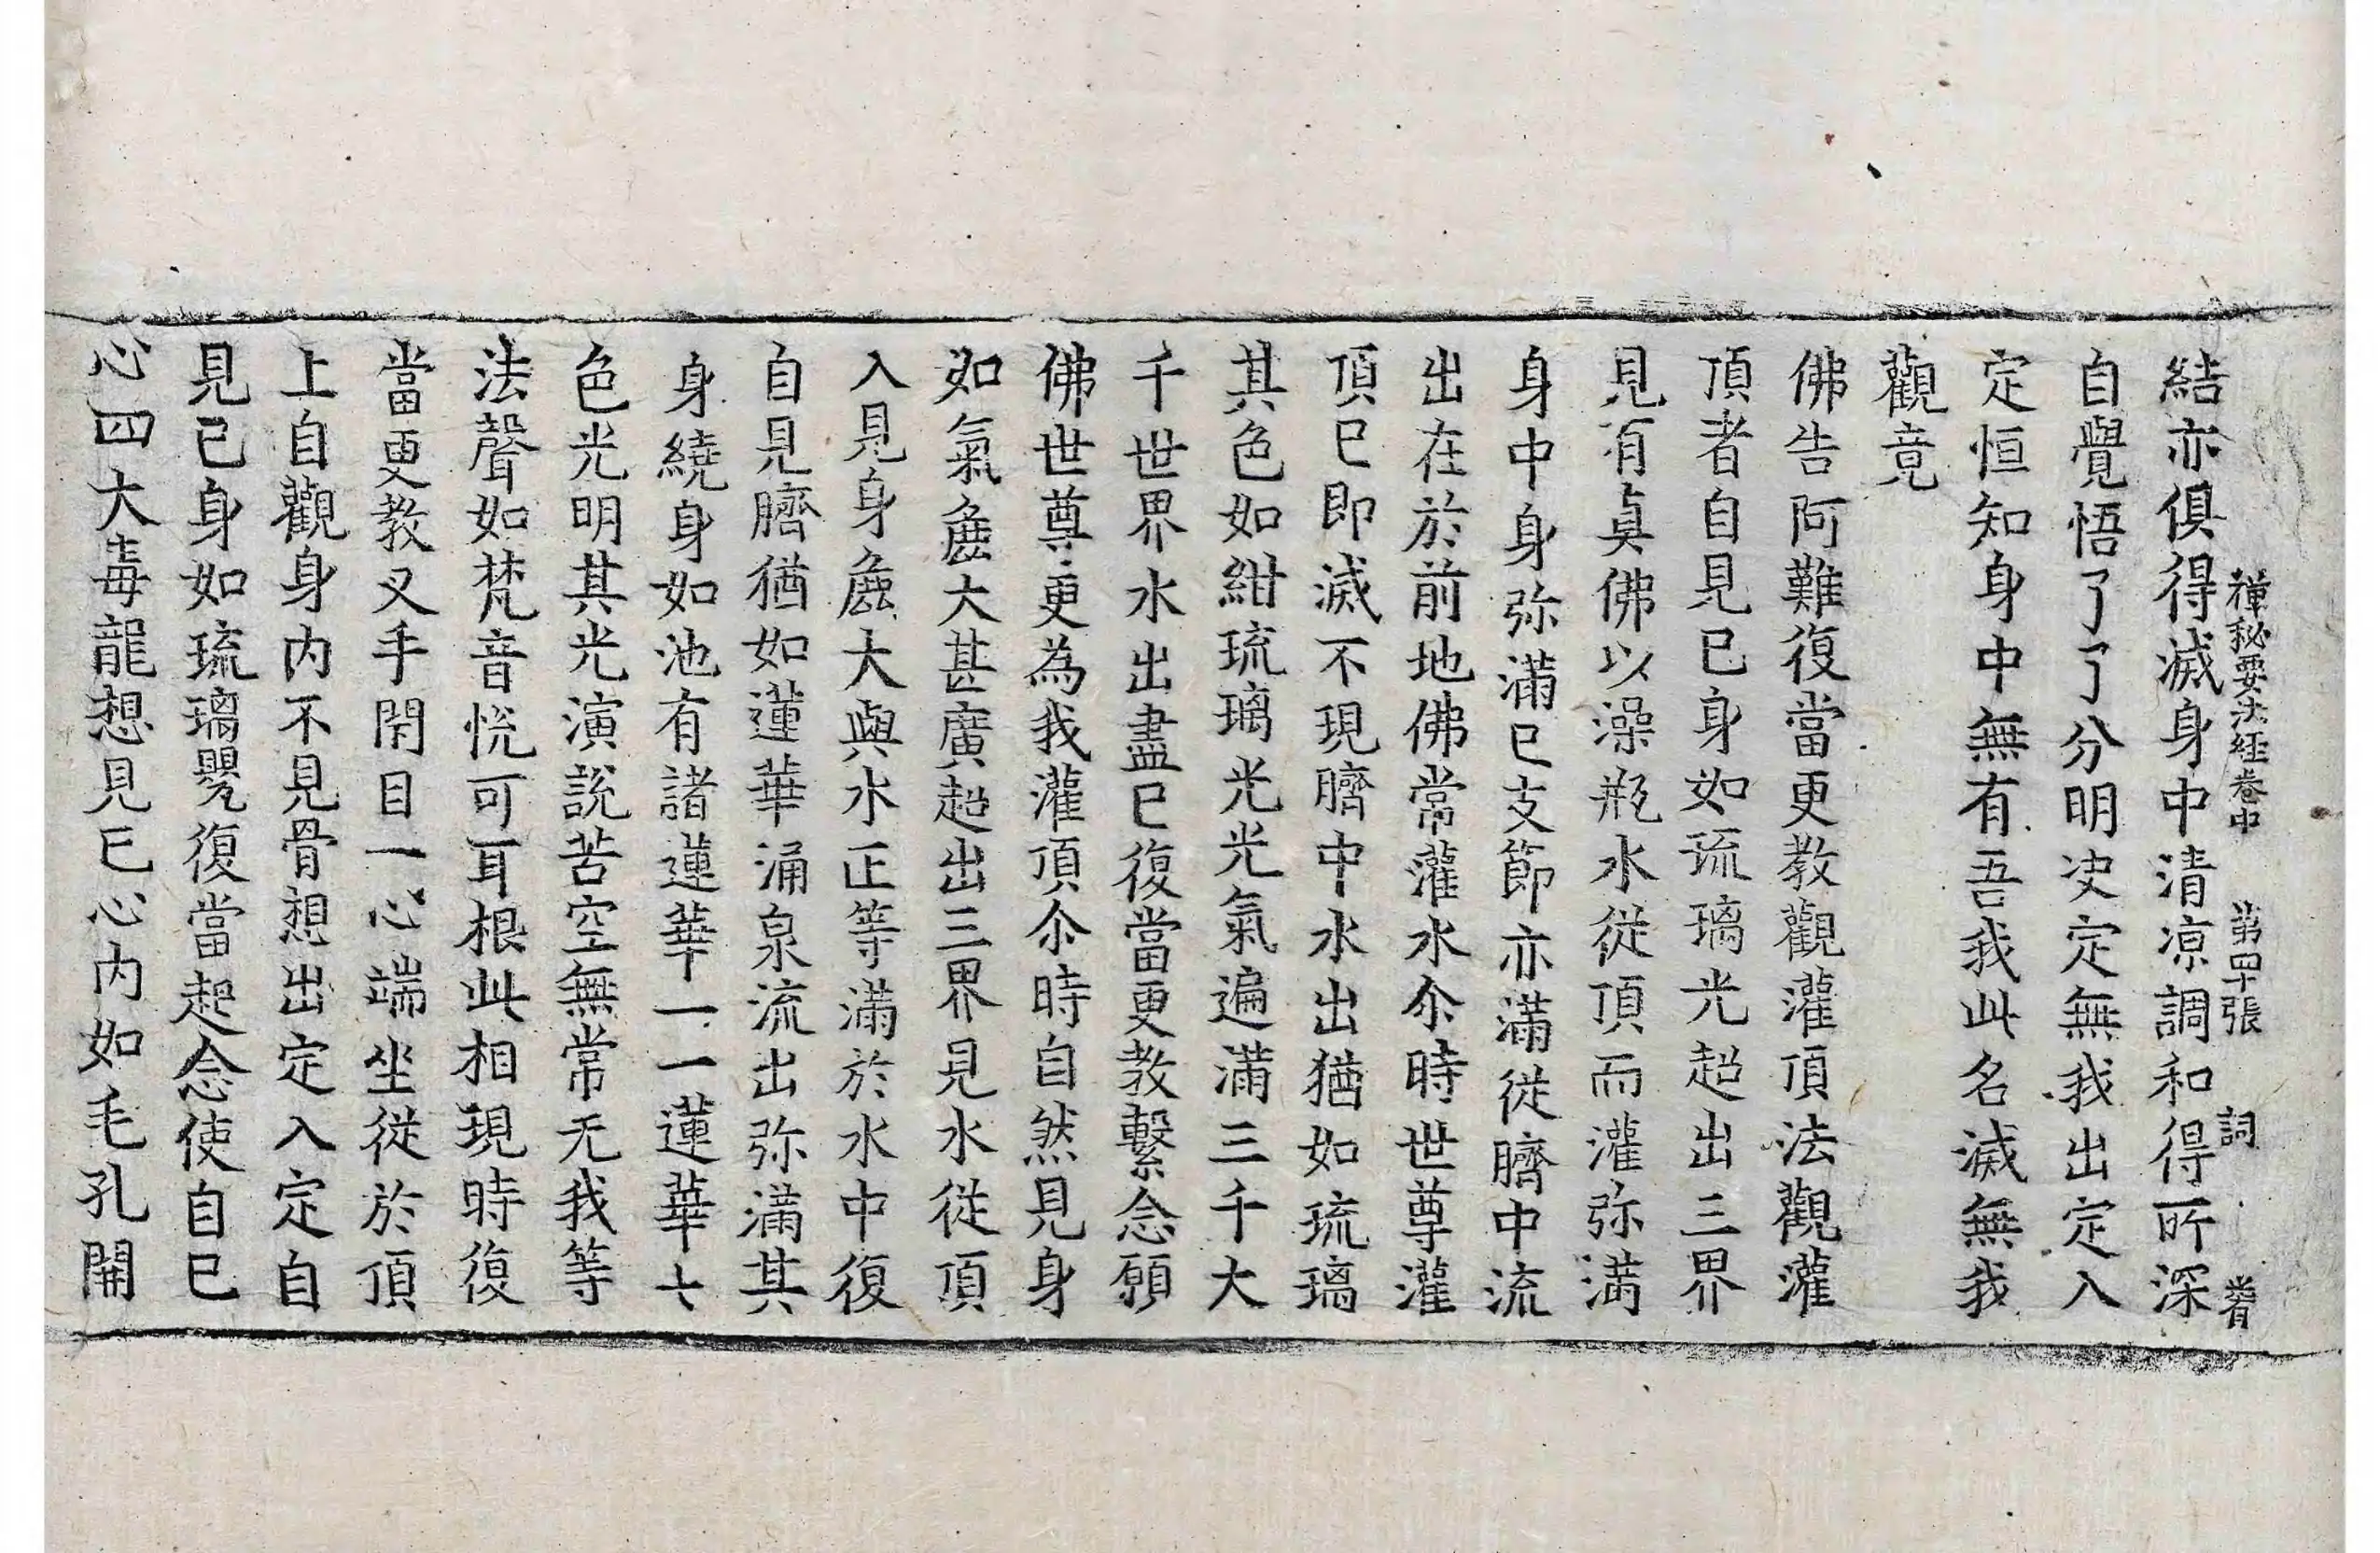 禪秘要法經卷中 第四十張 詞
結亦俱得滅身中清涼調和得所深
自覺悟了了分明决定無我出定入
定恒知身中無有吾我此名滅無我
觀竟
佛告阿難復當更教觀灌頂法觀灌
頂者自見已身如琉璃光超出三界
見有真佛以澡瓶水從頂而灌弥满
身中身弥滿已支節亦滿從臍中流
出在於前地佛常灌水尒時世尊灌
頂已即滅不現臍中水出猶如琉璃
其色如紺琉璃光光氣遍滿三千大
千世界水出盡已復當更教繫念願
佛世尊更為我灌頂尒時自然見身
如氣麁大甚廣超出三界見水從頂
入見身麁大與水正等滿於水中復
自見臍猶如蓮華涌泉流出弥滿其
身繞身如池有諸蓮華一一蓮華七
色光明其光演說苦空無常无我等
法聲如梵音悅可耳根此相現時復
當更教叉手閇目一心端坐從於頂
上自觀身内不見骨想出定入定自
見已身如琉璃甖復當起念使自已
心四大毒龍想見已心内如毛孔開